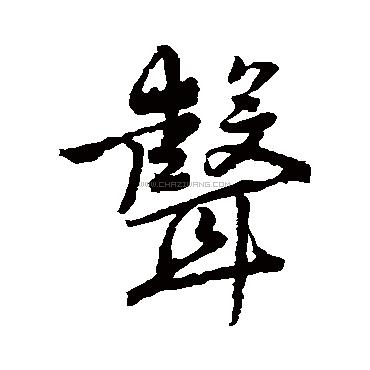 聲
WWW.CHAZIWANG.COM